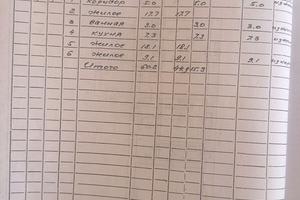 коридор 5.0 5.0 5.0
2 жилое 17.7 17.7
3 ванная 3.0 3.0 3.0
4 кухня 7.3 7.3 7.3
5 жилое 18.1 18.1
6 жилое 9.1 9.1 9.1
Итого 60.2 44.9 15.3